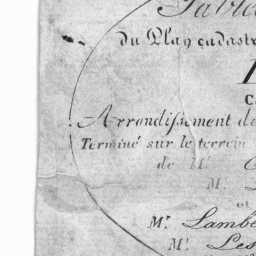 Table
du Plan cadast
C
Arrondissement de
Terminé sur le terrein
de Mr.
M.
et
Mr. Lambe
Mr. Les